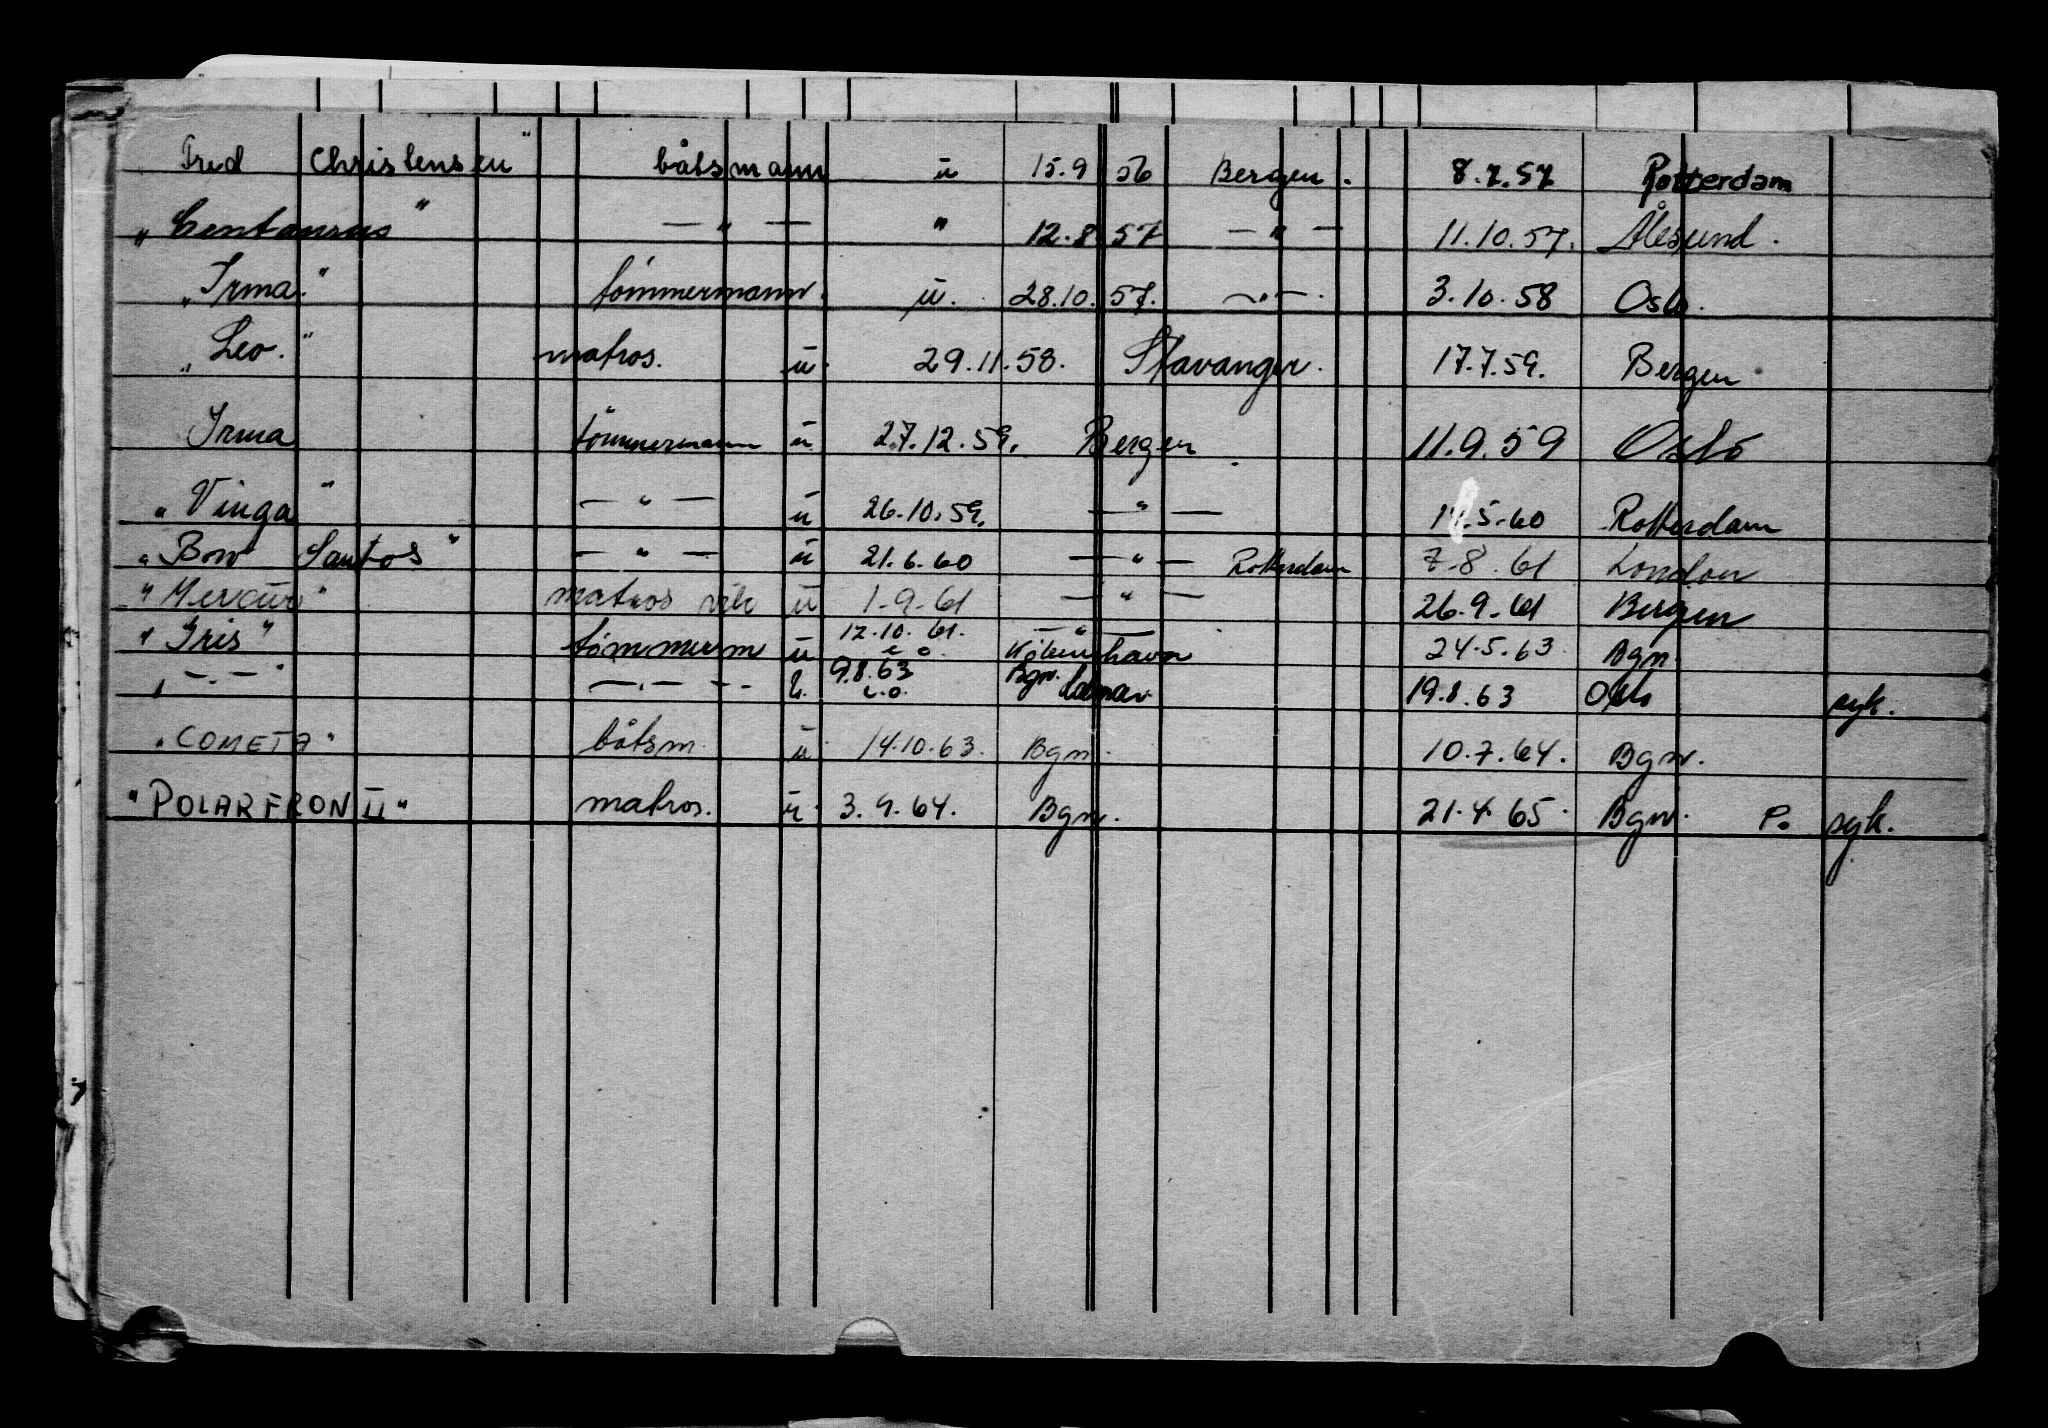 Fred Christensen" båtsmann u 15.9 56 Bergen. 8.7.57 Rotterdam
"Centaurus" — " — " 12.8 57 — " — 11.10.57. Ålesund.
"Irma." tömmermann. u. 28.10. 57. — " —. 3.10.58 Oslo.
"Leo." matros. u. 29.11.58. Stavanger. 17.7.59. Bergen
Irma tömmermann u. 27.12.59. Bergen 11.9.59 Oslo
"Vinga" — " — u 26.10.59. — " — 5.60 Rotterdam
"Bow Santos" — " — u 21.6.60 — " — Rotterdam 7.8.61 London
"Mercur" matros u 1.9.61 — " — 26.9.61 Bergen
"Iris" tømmerm u 12.10.61. — " — Köbenhavn 24.5.63 Bgn
" — . — " — . — . — . 9.8.63 Bgn. 19.8.63 Oslo syk.
"COMETA" båtsm. u. 14.10.63. Bgn. 10.7.64. Bgn.
"POLARFRON II" matros. u. 3.9.64. Bgn. 21.4.65. Bgn. P. syk.